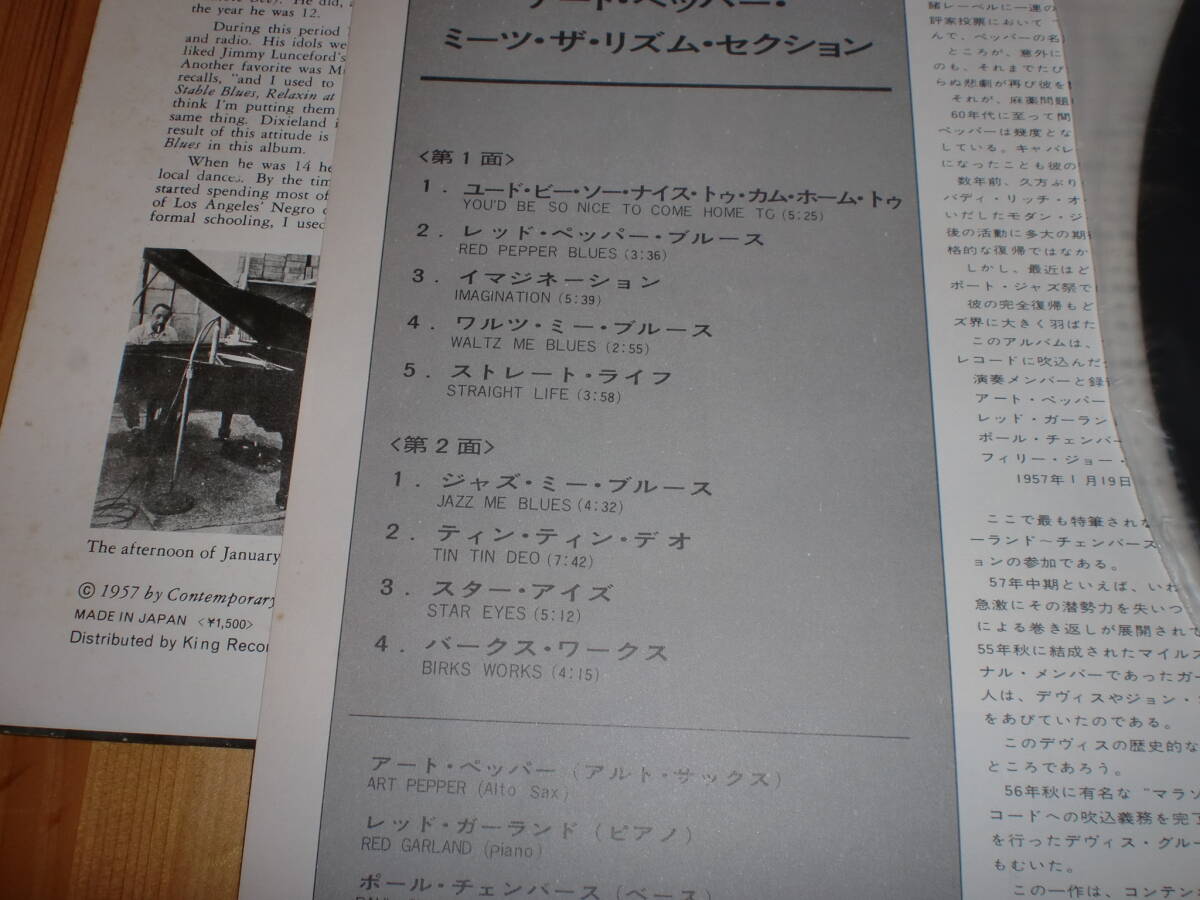 the year he was 12.
During this period
and radio. His idols we
liked Jimmy Lunceford's
Another favorite was
recalls, "and I used to
Stable Blues, Relaxin at
think I'm putting them
same thing. Dixieland
result of this attitude is
Blues in this album.
When he was 14 he
local dances. By the tim
started spending most of
of Los Angeles' Negro
formal schooling, I used
The afternoon of January
© 1957 by Contemporary
MADE IN JAPAN <¥1,500>
Distributed by King Recor
アート・ペッパー・
ミーツ・ザ・リズム・セクション
<第1面>
1. ユード・ビー・ソー・ナイス・トゥ・カム・ホーム・トゥ
YOU'D BE SO NICE TO COME HOME TO (5:25)
2. レッド・ペッパー・ブルース
RED PEPPER BLUES (3:36)
3. イマジネーション
IMAGINATION (5:39)
4. ワルツ・ミー・ブルース
WALTZ ME BLUES (2:55)
5. ストレート・ライフ
STRAIGHT LIFE (3:58)
<第2面>
1. ジャズ・ミー・ブルース
JAZZ ME BLUES (4:32)
2. ティン・ティン・デオ
TIN TIN DEO (7:42)
3. スター・アイズ
STAR EYES (5:12)
4. バークス・ワークス
BIRKS WORKS (4:15)
アート・ペッパー (アルト・サックス)
ART PEPPER (Alto Sax)
レッド・ガーランド (ピアノ)
RED GARLAND (piano)
ポール・チェンバース (ベース)
諸レーベルに一連の
評家投票において
んで、ペッパーの名
ところが、意外に
のも、それまでたび
らぬ悲劇が再び彼を
それが、麻薬問題
60年代に至って
ペッパーは幾度とな
している。キャバレ
になったことも彼の
数年前、久方ぶり
バディ・リッチ・オ
いだしたモダン・ジ
後の活動に多大の期
格的な復帰ではなか
しかし、最近はど
ポート・ジャズ祭で
彼の完全復帰もど
ズ界に大きく羽ばた
このアルバムは、
レコードに吹込んだ
演奏メンバーと録
アート・ペッパー
レッド・ガーラン
ポール・チェンバー
フィリー・ジョー・
1957年1月19日
ここで最も特筆されな
ーランド〜チェンバース
ョンの参加である。
57年中期といえば、いわ
急激にその潜勢力を失いつ
による巻き返しが展開されて
55年秋に結成されたマイルス
ナル・メンバーであったガー
人は、デヴィスやジョン・
をあびていたのである。
このデヴィスの歴史的な
ところであろう。
56年秋に有名な "マラソ
コードへの吹込義務を完了
を行ったデヴィス・グルー
もむいた。
この一作は、コンテン